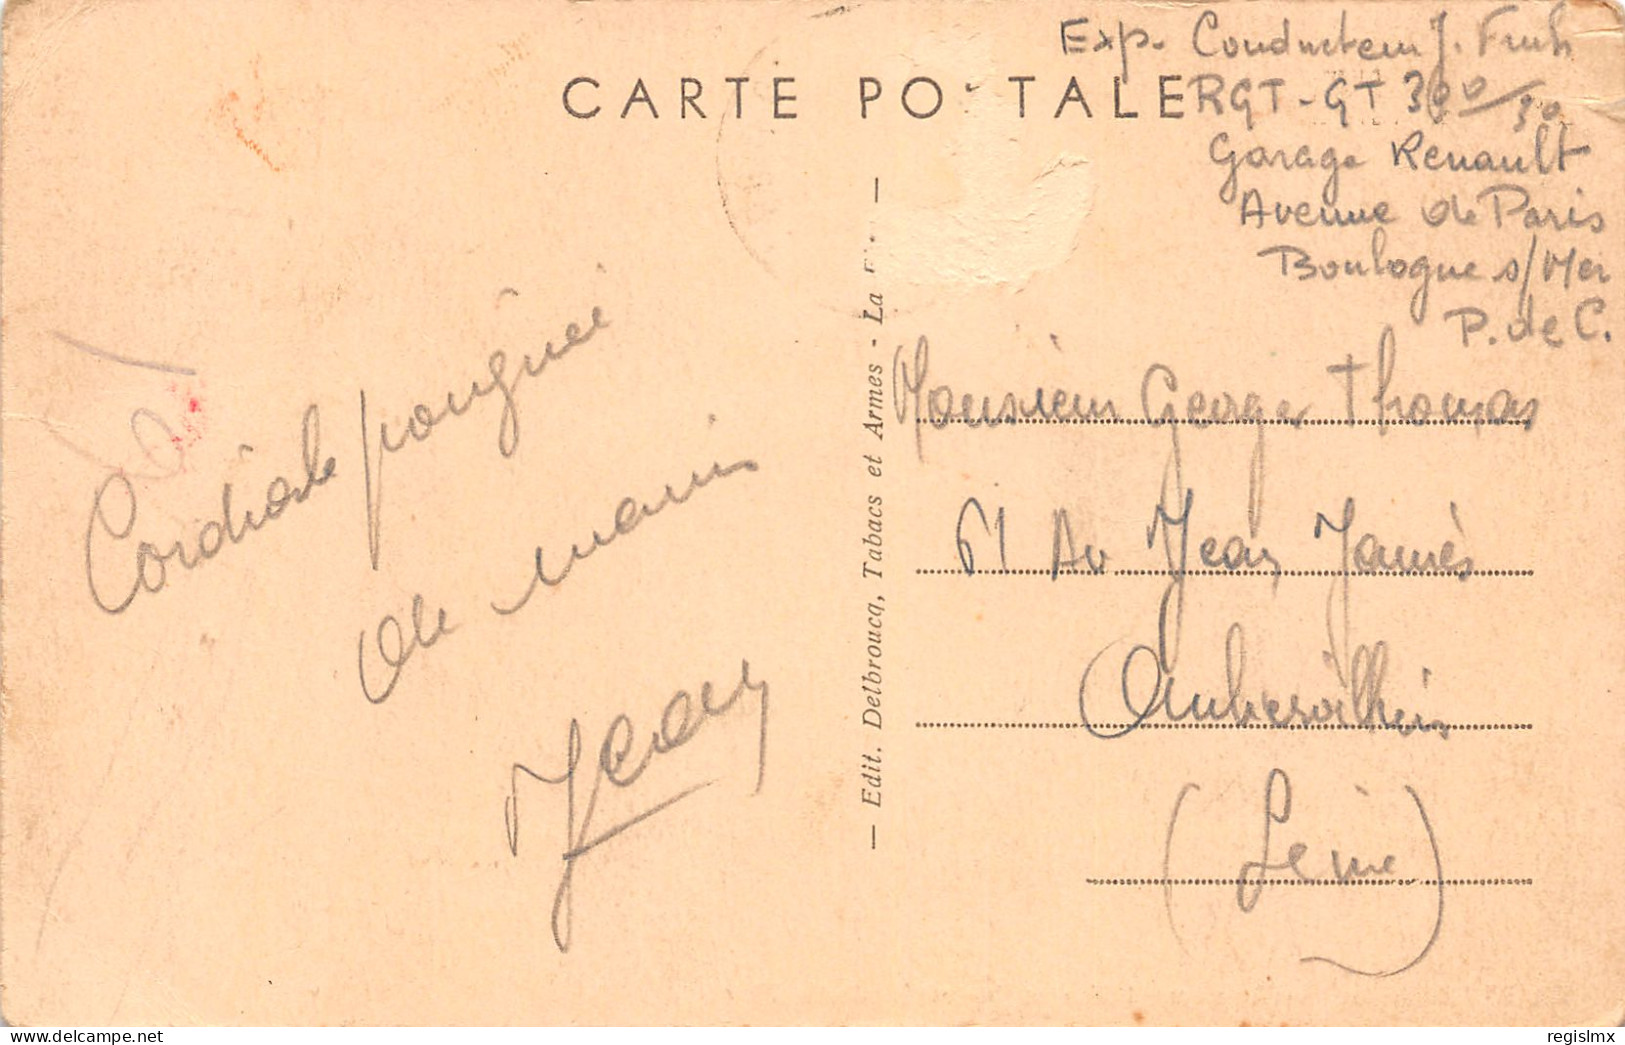 Exp. Conducteur J. Fruh
CARTE PO TALE
RGT - GT 300/30
Garage Renault
Avenue de Paris
Boulogne s/Mer
P. de C.
Cordiale poignée
de mains
Jean
— Edit. Delbroucq, Tabacs et Armes - La —
Monsieur George Thomas
61 Av Jean Jaurès
Aubervilliers
(Seine)
regislmx